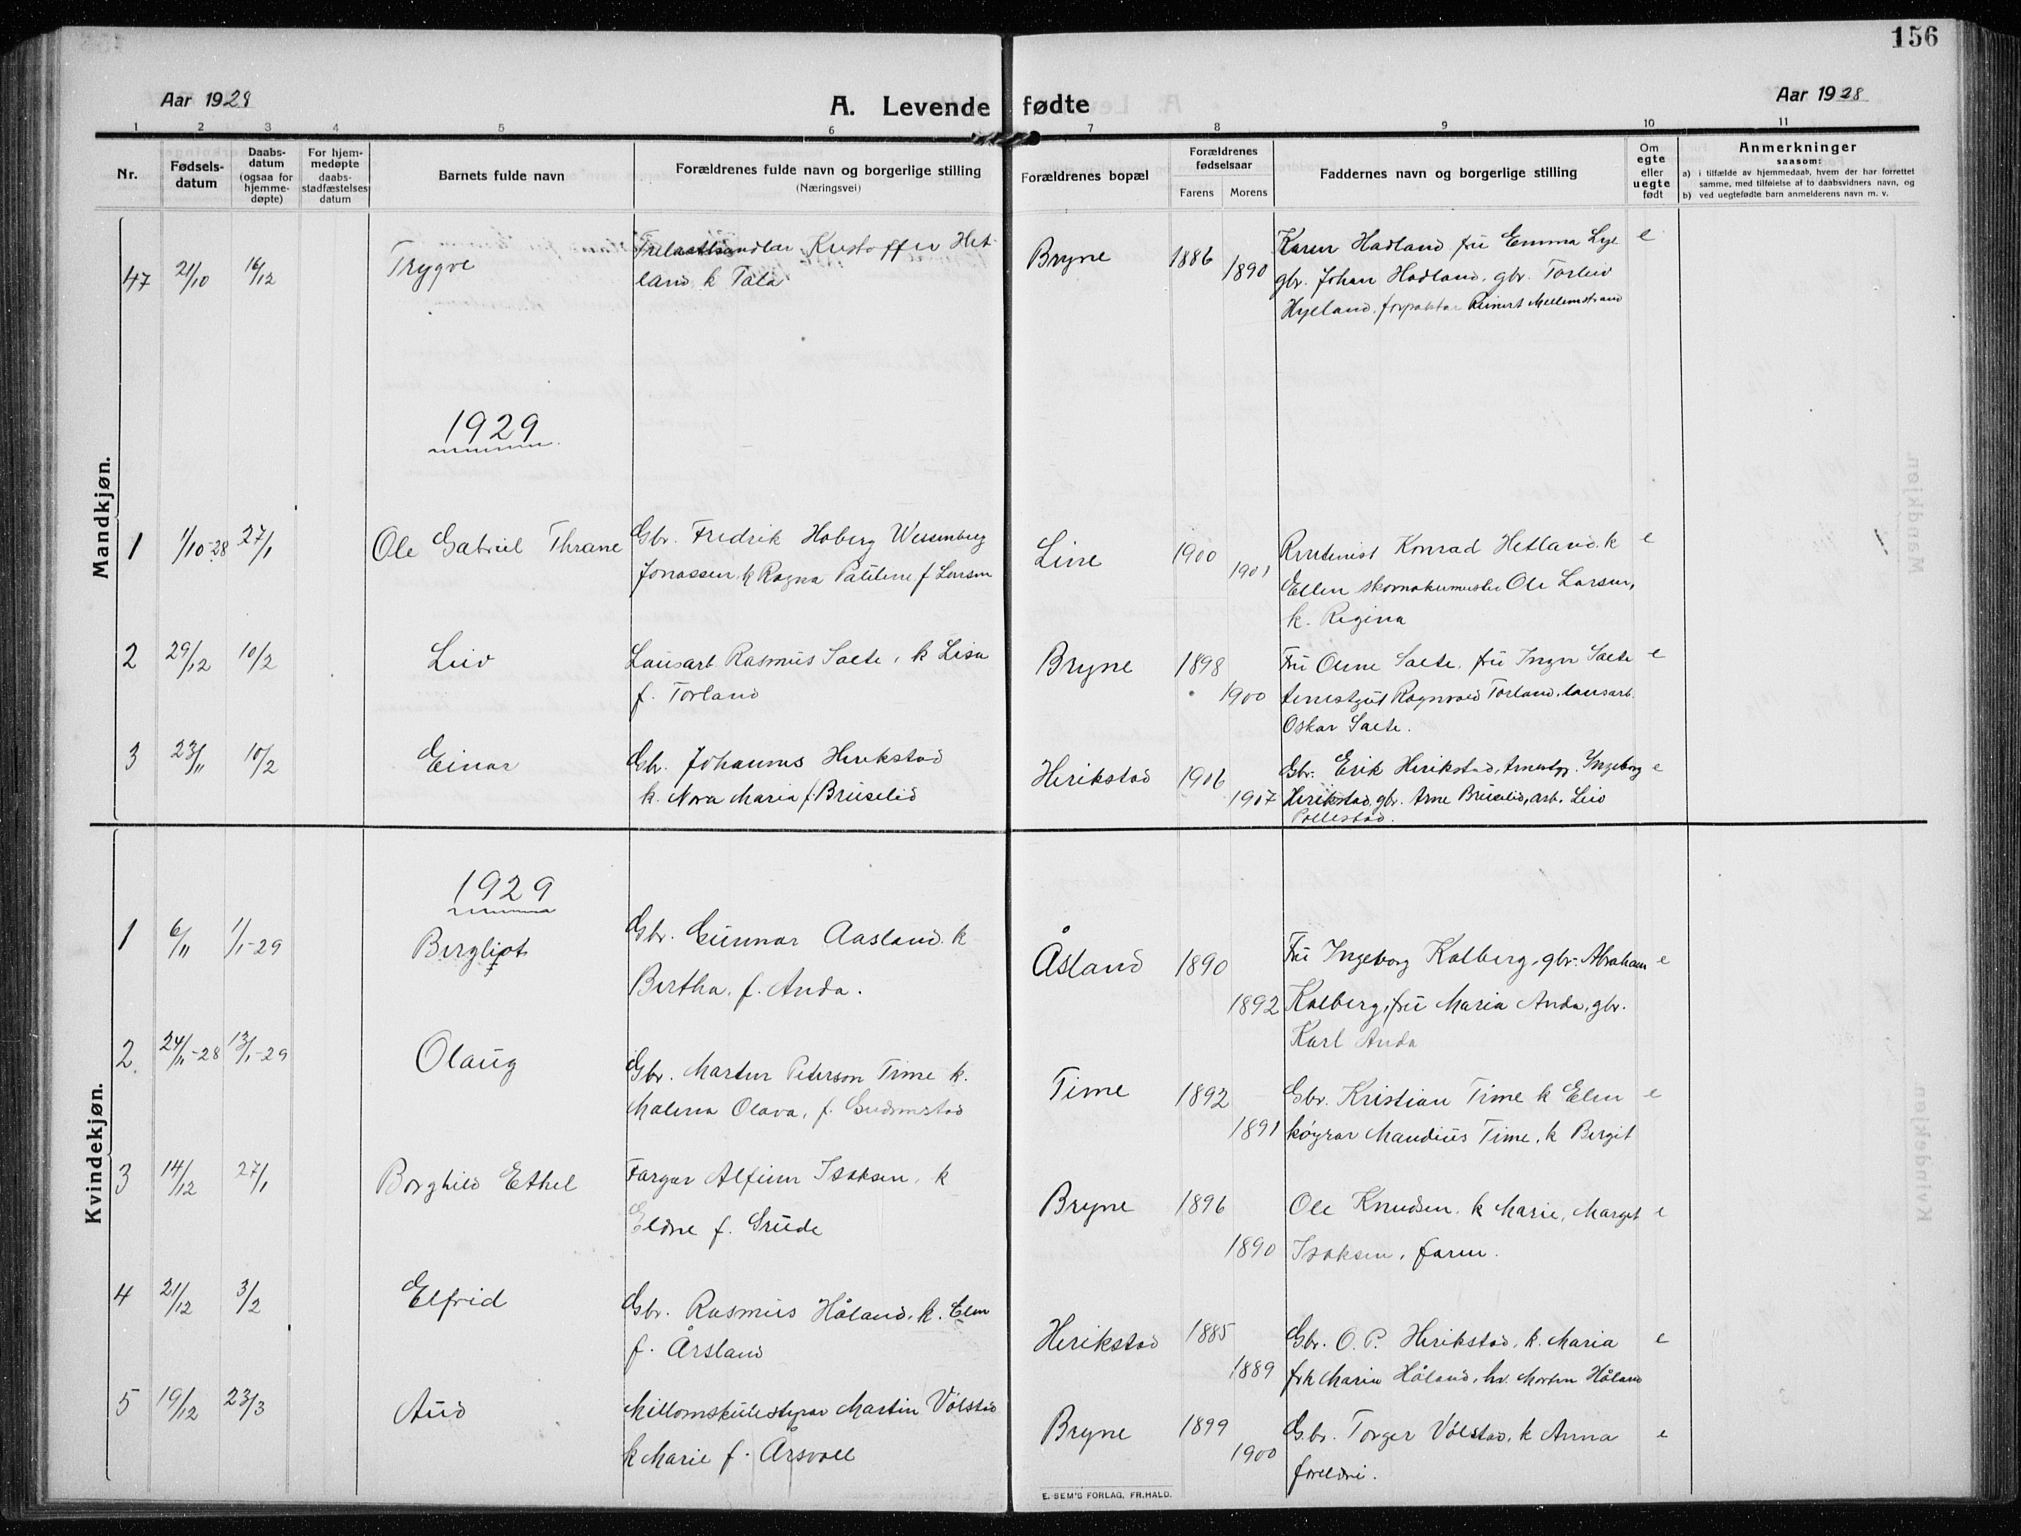 156
Aar 1928
A. Levende fødte
Aar 1928
1 2 3 4 5 6 7 8 9 10 11
Nr.
Fødsels-
datum
Daabs-
datum
(ogsaa for
hjemme-
døpte)
For hjem-
medøpte
daabs-
stadfæstelses
datum
Barnets fulde navn
Forældrenes fulde navn og borgerlige stilling
(Næringsvei)
Forældrenes bopæl
Forældrenes
fødselsaar
Farens Morens
Faddernes navn og borgerlige stilling
Om
egte
eller
uegte
født
Anmerkninger
saasom:
a) i tilfælde av hjemmedaab, hvem der har forrettet
samme, med tilføielse af to daabsvidners navn, og
b) ved uegtefødte barn anmelderens navn m. v.
Mandkjøn.
47 21/10 16/12 Trygve
Kristoffer Het-
land k Tala
Bryne 1886 1890
Karen Hadland fru Emma Lye e
gbr. Johan Hadland, gbr. Torleiv
Hyeland, forpaktar Reinert Mellemstrand
1929
1 1/10-28 27/1 Ole Gabriel Thrane
Gbr. Fredrik Hoberg Wessenberg
Jonassen k Ragna Paueline f Larsen
Line 1900 1901
Konrad Hetland k e
Ellen skomakermester Ole Larsen,
k. Regina
2 29/12 10/2 Leiv
Lausarb. Rasmus Saete, k Lisa
f. Torland
Bryne 1898 1900
Fru Olene Saete, fru Inger Saete e
tenestgut Ragnvald Torland, lausarb.
Oskar Saete.
3 23/11 10/2 Einar
Gbr. Johannes Herikstad
k. Nora Maria f. Bruselid
Herikstad 1906 1907
Gbr. Erik Herikstad, tenestgj. Ingeborg e
Herikstad, gbr. Arne Bruselid, arb. Leiv
Pollestad.
Kvindekjøn.
1929
1 6/11 1/1-29 Bergljot
Gbr. Gunnar Aasland k
Bertha, f. Anda.
Åsland 1890 1892
Fru Ingeborg Kalberg, gbr. Abraham e
Kalberg, fru Maria Anda, gbr.
Karl Anda
2. 24/11-28 13/1-29 Olaug
Gbr. Martin Peterson Time k.
Malena Olava, f. Gudmestad
Time 1892 1891
Gbr. Kristian Time k Elen e
køyrar Mandius Time, k Bergit
3 14/12 27/1 Borghild Ethel
Fargar Alfinn Isaksen, k
Eldne f. Grude
Bryne 1896 1890
Ole Knudsen, k Marie, Marget e
Isaksen, faren.
4 21/12 3/2 Elfrid
Gbr. Rasmus Håland, k. Elen
f. Årsland
Herikstad 1885 1889
Gbr. O. P. Herikstad, k. Maria e
frk Maria Håland, hv. Morten Håland
5 19/12 23/3 Aud
Millomskulestyrar Martin Vølstad
k Marie f. Årsvoll
Bryne 1899 1900
Gbr. Torger Vølstad, k Anna e
foreldri.
E. SEM'S FORLAG, FR.HALD.